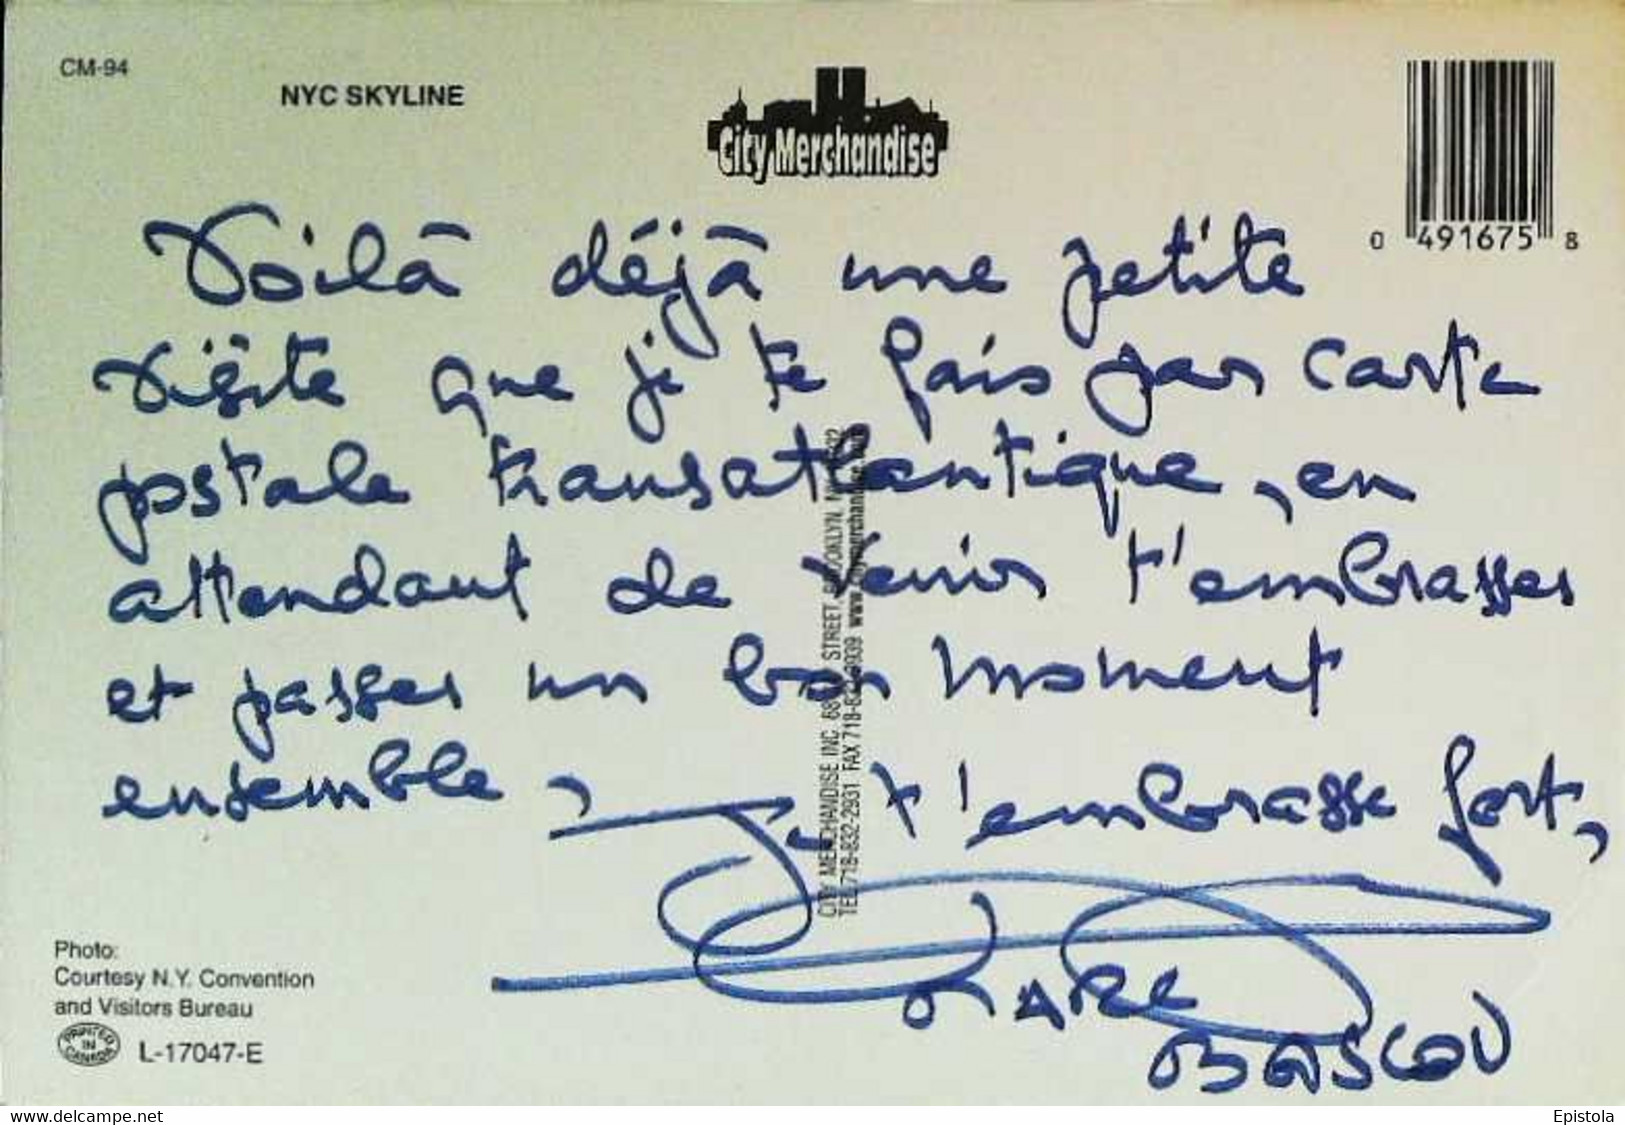 CM-94
NYC SKYLINE
City Merchandise
0 491675 8
Voilà déjà une petite
visite que je te fais par carte
postale transatlantique, en
attendant de venir t'embrasser
et passer un bon moment
ensemble,
Je t'embrasse fort,
MARC
BASCOU
CITY MERCHANDISE INC. STREET, BROOKLYN, N.Y.
TEL 718-832-2931 FAX 718-832-2939 www.citymerchandise.com
Photo:
Courtesy N.Y. Convention
and Visitors Bureau
PRINTED IN CANADA
L-17047-E
https://www.delcampe.net
Epistola